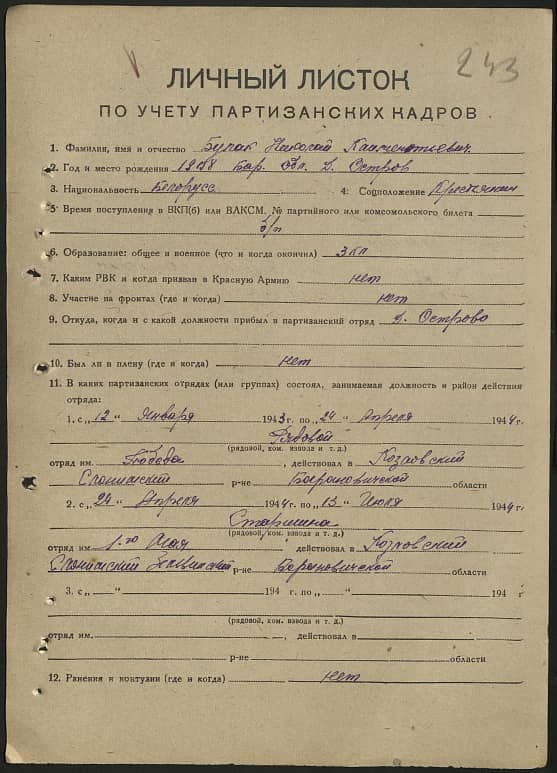 243
ЛИЧНЫЙ ЛИСТОК
ПО УЧЕТУ ПАРТИЗАНСКИХ КАДРОВ
1. Фамилия, имя и отчество Булак Николай
2. Год и место рождения 1908 Бар. обл. д. Остров
3. Национальность Белорусс 4. Соцположение Крестьянин
5. Время поступления в ВКП(б) или ВЛКСМ, № партийного или комсомольского билета
б/п
6. Образование: общее и военное (что и когда окончил) 3 кл
7. Каким РВК и когда призван в Красную Армию нет
8. Участие на фронтах (где и когда) нет
9. Откуда, когда и с какой должности прибыл в партизанский отряд д. Острово
10. Был ли в плену (где и когда) нет
11. В каких партизанских отрядах (или группах) состоял, занимаемая должность и район действия
отряда:
1. с „12“ Января 1943 г. по „24“ Апреля 1944 г.
Рядовой
(рядовой, ком. взвода и т. д.)
отряд им. Победа, действовал в Козловский
Слонимский р-не Барановичской области
2. с „24“ Апреля 1944 г. по „15“ Июля 1944 г.
Старшина
(рядовой, ком. взвода и т. д.)
отряд им. 1-го Мая действовал в Козловский
Слонимский р-не Барановичской области
3. с „ “ 194 г. по „ “ 194 г
(рядовой, ком. взвода и т. д.)
отряд им. , действовал в
р-не области
12. Ранения и контузии (где и когда) нет